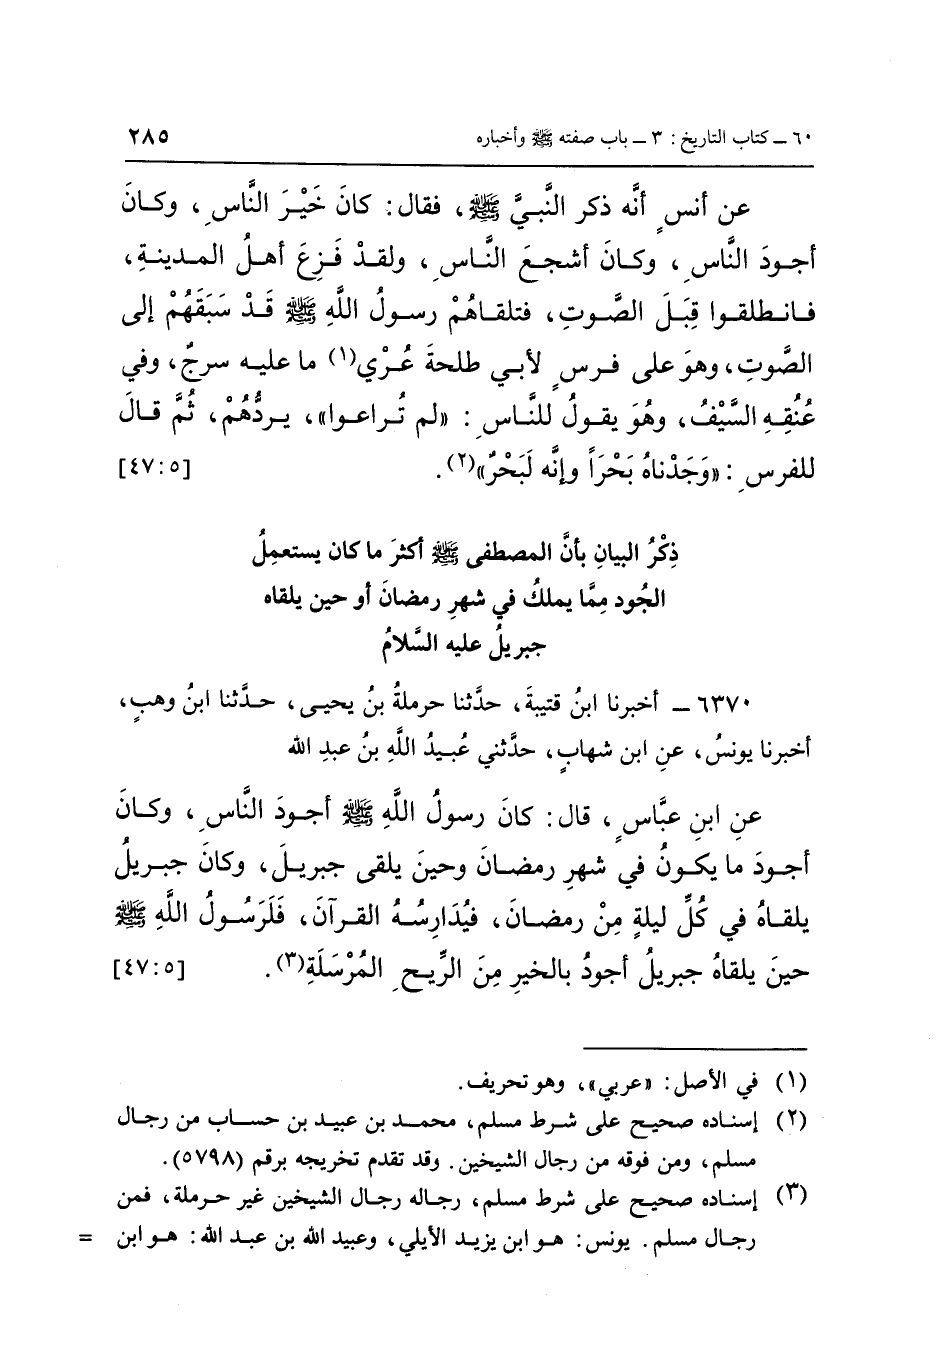 ٦٠ ـ كتاب التاريخ : ٣ ـ باب صفته ﷺ وأخباره ٢٨٥
عن أنسٍ أنَّه ذكر النَّبيَّ ﷺ، فقال: كانَ خَيْرَ النَّاسِ، وكانَ
أجودَ النَّاسِ، وكانَ أشجعَ النَّاسِ، ولقدْ فَزِعَ أهلُ المدينةِ،
فانطلقوا قِبَلَ الصَّوتِ، فتلقاهُمْ رسولُ اللَّهِ ﷺ قَدْ سَبَقَهُمْ إلى
الصَّوتِ، وهوَ على فرسٍ لأبي طلحةَ عُرْي(١) ما عليه سرجٌ، وفي
عُنُقِهِ السَّيْفُ، وهُوَ يقولُ للنَّاسِ : «لم تُراعوا»، يردُّهُمْ، ثُمَّ قالَ
للفرسِ : «وَجَدْناهُ بَحْرَاً وإنَّه لَبَحْرٌ»(٢). [٤٧:٥]
ذِكْرُ البيانِ بأنَّ المصطفى ﷺ أكثرَ ما كان يستعمِلُ
الجُود مِمَّا يملكُ في شهرِ رمضانَ أو حين يلقاه
جبريلُ عليه السَّلامُ
٦٣٧٠ ـ أخبرنا ابنُ قتيبةَ، حدَّثنا حرملةُ بنُ يحيى، حدَّثنا ابنُ وهبٍ،
أخبرنا يونسُ، عنِ ابن شهابٍ، حدَّثني عُبيدُ اللَّهِ بنُ عبدِ الله
عنِ ابنِ عبَّاسٍ، قال: كانَ رسولُ اللَّهِ ﷺ أجودَ النَّاسِ، وكانَ
أجودَ ما يكونُ في شهرِ رمضانَ وحينَ يلقى جبريلَ، وكانَ جبريلُ
يلقاهُ في كُلِّ ليلةٍ مِنْ رمضانَ، فيُدَارِسُهُ القرآنَ، فَلَرَسُولُ اللَّهِ ﷺ
حينَ يلقاهُ جبريلُ أجودُ بالخيرِ مِنَ الرِّيحِ المُرْسَلَةِ(٣). [٤٧:٥]
(١) في الأصل: «عربي»، وهو تحريف.
(٢) إسناده صحيح على شرط مسلم، محمد بن عبيد بن حساب من رجال
مسلم، ومن فوقه من رجال الشيخين. وقد تقدم تخريجه برقم (٥٧٩٨).
(٣) إسناده صحيح على شرط مسلم، رجاله رجال الشيخين غير حرملة، فمن
رجال مسلم. يونس: هو ابن يزيد الأيلي، وعبيد الله بن عبد الله: هو ابن =